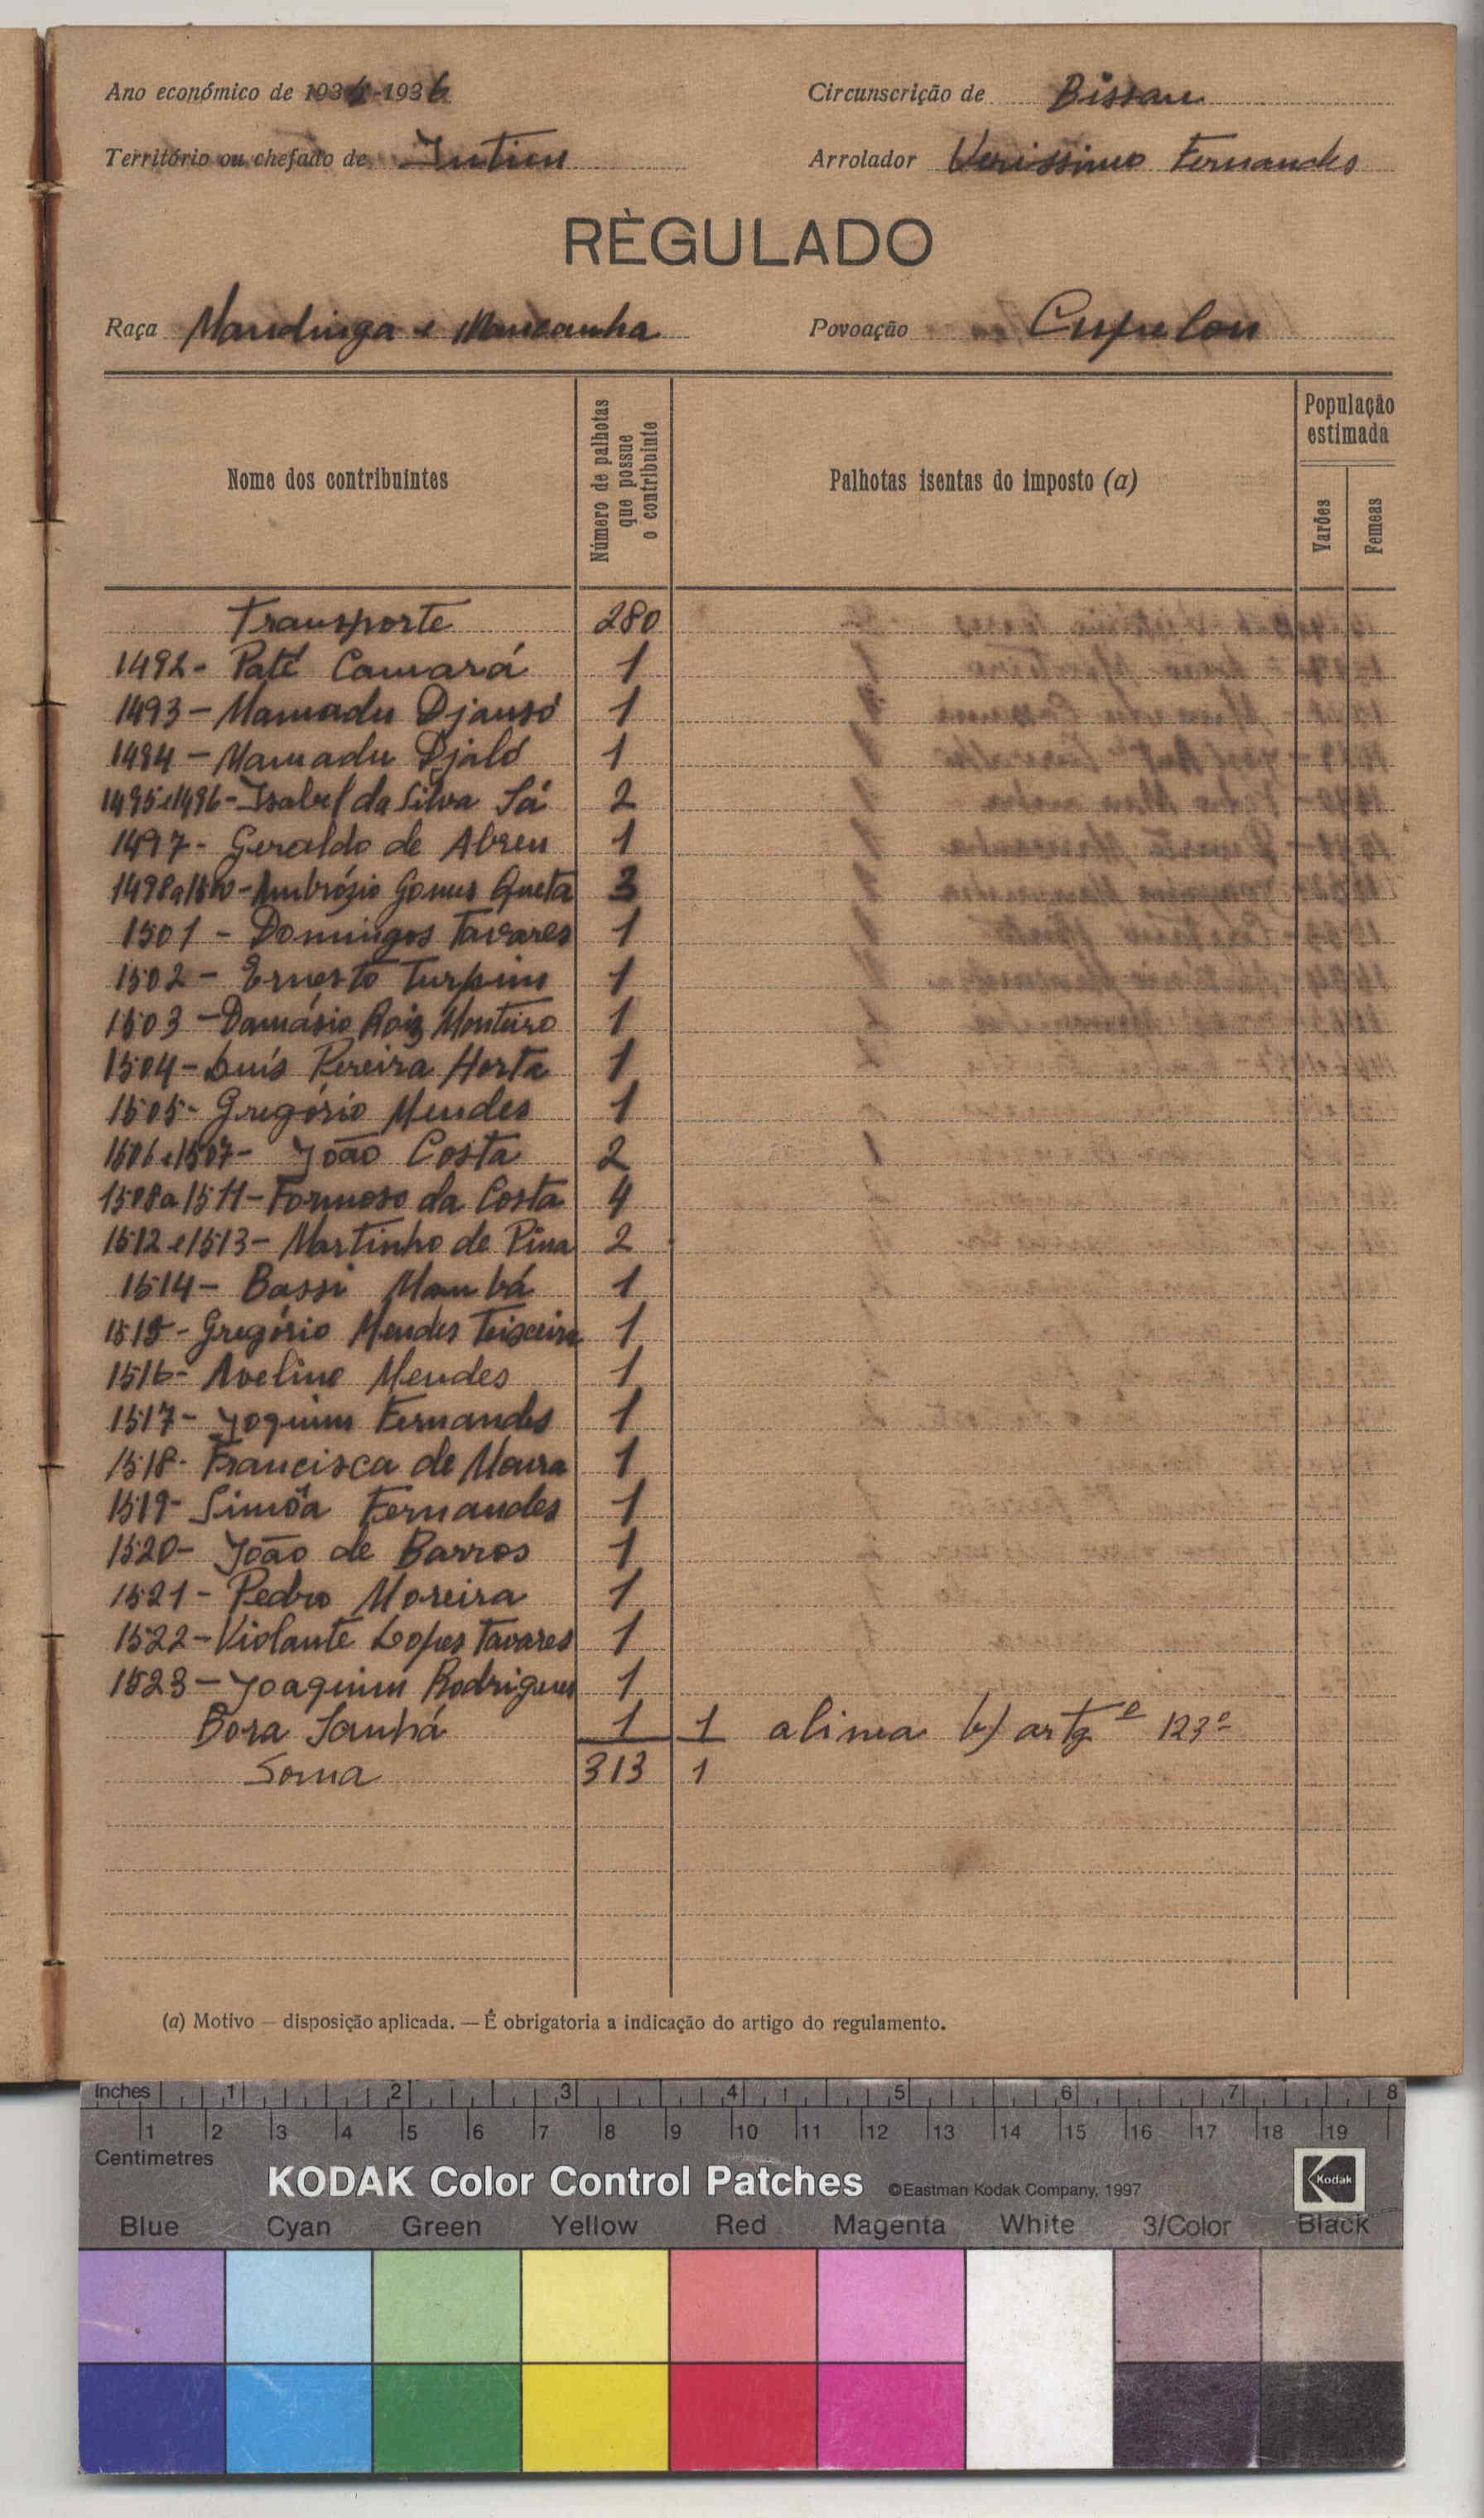 Ano económico de 1934-1936
Circunscrição de Bissau
Território ou chefado de Intim
Arrolador Verissimo Fernandes
RÈGULADO
Raça Mandinga e Mancanha
Povoação Cupelon
Nome dos contribuintes
Número de palhotas
que possue
o contribuinte
Palhotas isentas do imposto (a)
População
estimada
Varões
Femeas
Transporte 280
1492- Paté Camará 1
1493- Mamadu Djansó 1
1494- Mamadu Djaló 1
1495e1496- Isabel da Silva Sá 2
1497- Geraldo de Abreu 1
1498a1500- Ambrósio Gomes Queta 3
1501- Domingos Tavares 1
1502- Ernesto Turpim 1
1503- Damásio Roiz Monteiro 1
1504- Luís Pereira Horta 1
1505- Gregório Mendes 1
1506e1507- João Costa 2
1508a1511- Formoso da Costa 4
1512e1513- Martinho de Pina 2
1514- Bassi Mambá 1
1515- Gregório Mendes Teixeira 1
1516- Avelino Mendes 1
1517- Joquim Fernandes 1
1518- Francisca de Moura 1
1519- Simôa Fernandes 1
1520- João de Barros 1
1521- Pedro Moreira 1
1522- Violante Lopes Tavares 1
1523- Joaquim Rodrigues 1
Bora Sanhá 1 1 alinea b) artgº 123º
Soma 313 1
(a) Motivo — disposição aplicada. — É obrigatoria a indicação do artigo do regulamento.
Inches 1 2 3 4 5 6 7 8
1 2 3 4 5 6 7 8 9 10 11 12 13 14 15 16 17 18 19
Centimetres
KODAK Color Control Patches ©Eastman Kodak Company, 1997 Kodak
Blue Cyan Green Yellow Red Magenta White 3/Color Black